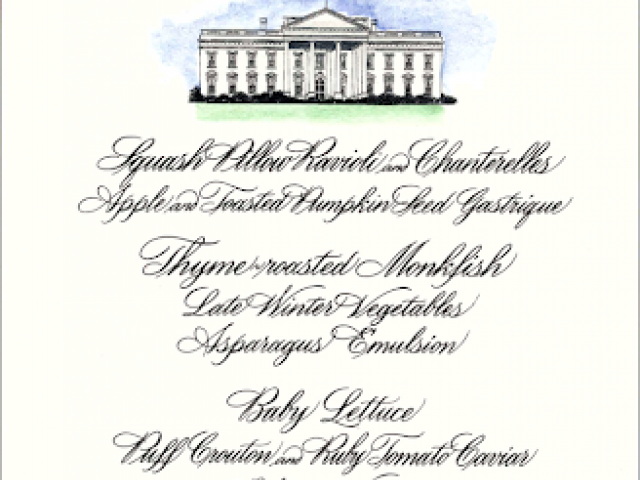 Squash Pillow Ravioli and Chanterelles
Apple and Toasted Pumpkin Seed Gastrique
Thyme-roasted Monkfish
Late Winter Vegetables
Asparagus Emulsion
Baby Lettuce
Puff Crouton and Ruby Tomato Caviar